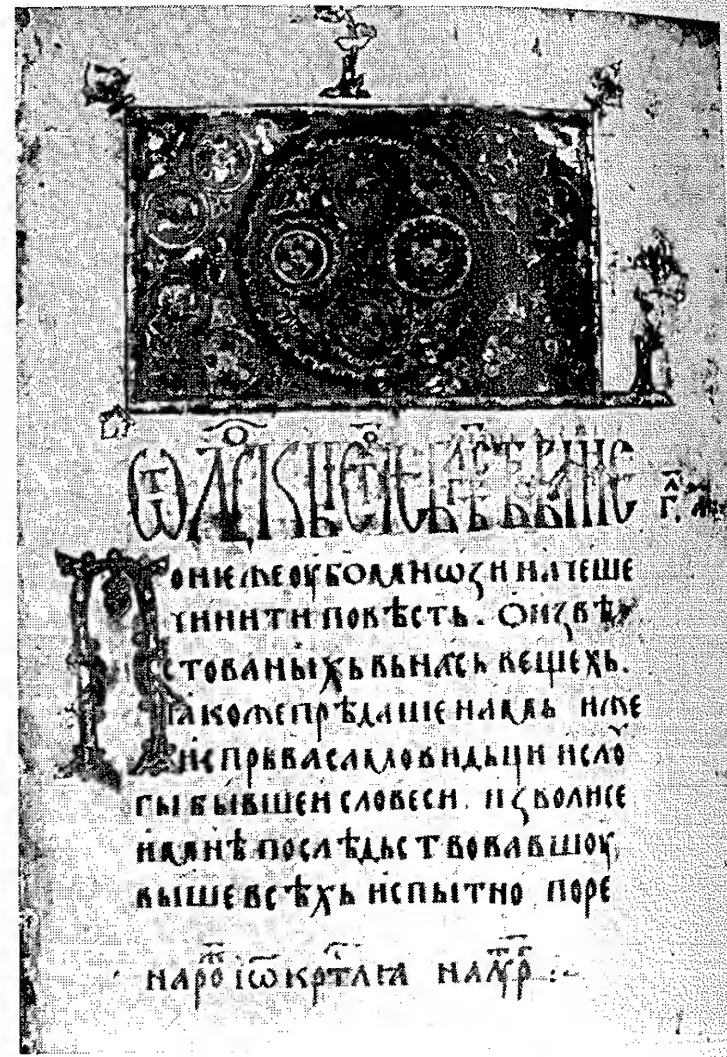 Понѥже оубо мнѡꙁи начеше
чинити повѣсть. О иꙁвѣ
стованыхь вь нась вещехь.
ꙗкоже прѣдаше намь иже
испрьва самовидьци и слоу
гы бывшеи словеси. иꙁволисе
и мнѣ послѣдьствовавшоу
выше всѣхь испытно поре
на роⷤ іѡ крⷭтлꙗ на